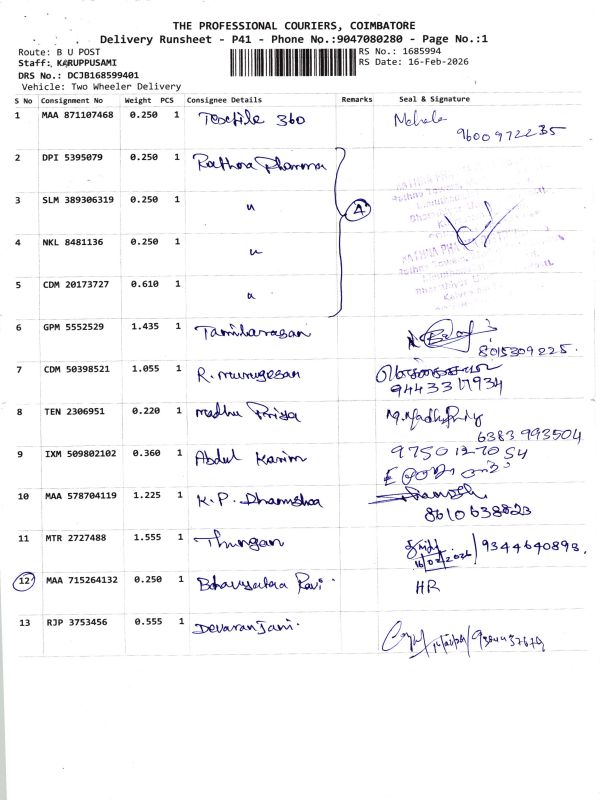 THE PROFESSIONAL COURIERS, COIMBATORE
Delivery Runsheet - P41 - Phone No.:9047080280 - Page No.:1
Route: B U POST
RS No.: 1685994
Staff: KARUPPUSAMI
RS Date: 16-Feb-2026
DRS No.: DCJB168599401
Vehicle: Two Wheeler Delivery
S No Consignment No Weight PCS Consignee Details Remarks Seal & Signature
1 MAA 871107468 0.250 1 Textile 360
9600972235
2 DPI 5395079 0.250 1 Rathna Pharma
3 SLM 389306319 0.250 1 "
4
4 NKL 8481136 0.250 1 "
5 CDM 20173727 0.610 1 "
6 GPM 5552529 1.435 1 Tamilarasan
8015309225.
7 CDM 50398521 1.055 1 R. Murugesan
9443317934
8 TEN 2306951 0.220 1 Madhu Priya
6383 993504
9 IXM 509802102 0.360 1 Abdul Karim 9750127054
10 MAA 578704119 1.225 1 K.P.
8610638823
11 MTR 2727488 1.555 1 9344640893.
16/02/2026
12 MAA 715264132 0.250 1 Ravi HR
13 RJP 3753456 0.555 1 Devaranjani.